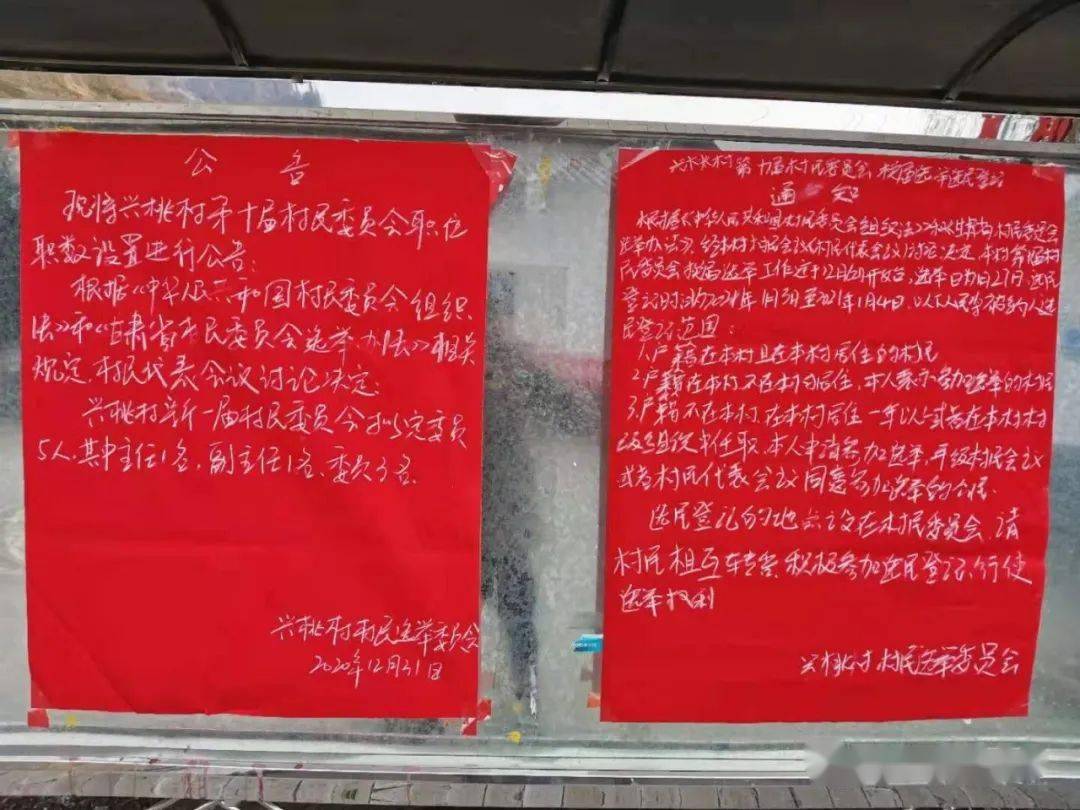 公告
现将兴桃村第十届村民委员会职位
职数设置进行公告:
根据《中华人民共和国村民委员会组织
法》和《甘肃省村民委员会选举办法》相关
规定,村民代表会议讨论决定:
兴桃村新一届村民委员会拟定委员
5人,其中主任1名,副主任1名,委员3名.
兴桃村村民选举委员会
2020年12月31日
兴桃村第十届村民委员会换届选举选民登记
通知
根据《中华人民共和国村民委员会组织法》和《甘肃省村民委员会
选举办法》经本村村民会议(村民代表会议)讨论决定,本村第十届村
民委员会换届选举工作
登记时间为
民登记范围:
1.户籍在本村且在本村居住的村民
2.户籍在本村,不在本村居住,本人表示参加选举的村民
3.户籍不在本村,在本村居住一年以上或者在本村村
级组织中任职,本人申请参加选举,并经村民会议
或者村民代表会议同意参加选举的公民.
选民登记的地点设在村民委员会,请
村民相互转告,积极参加选民登记,行使
选举权利
兴桃村村民选举委员会